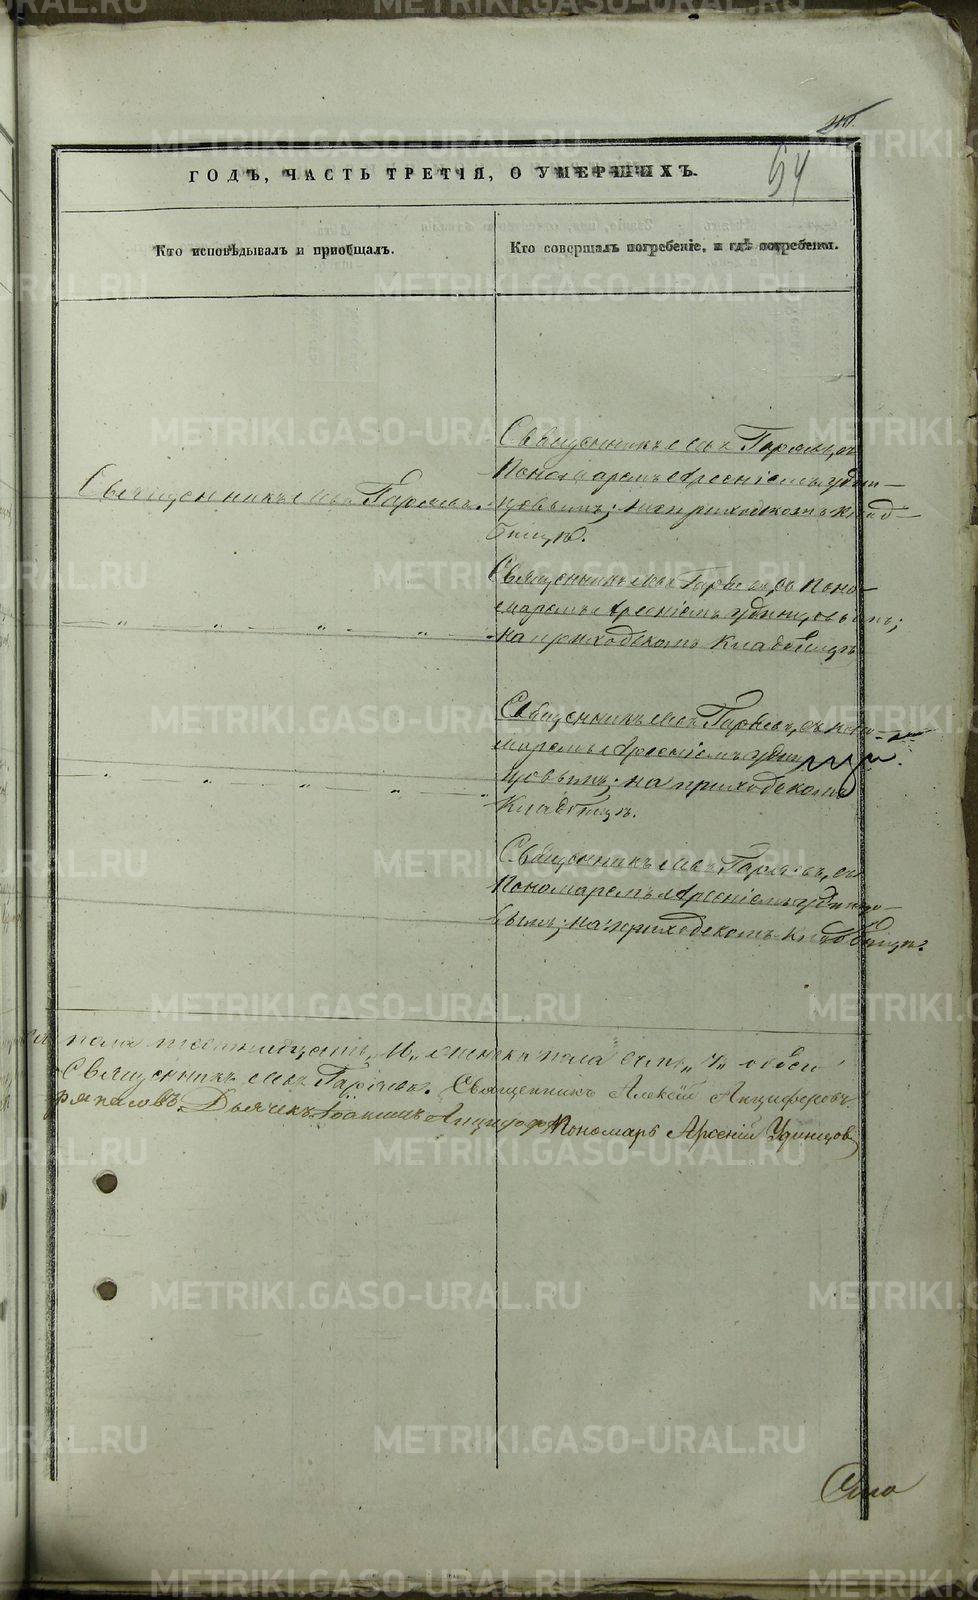 METRIKI.GASO-URAL.RU
54
ГОДЪ, ЧАСТЬ ТРЕТІЯ, О УМЕРШИХЪ.
Кто исповѣдывалъ и пріобщалъ.
Кто совершалъ погребеніе, и гдѣ погребены.
Священникъ Левъ Гаряевъ.
Священникъ Левъ Гаряевъ съ
Пономаремъ Арсеніемъ Удин-
цовымъ; на приходскомъ клад-
бищѣ.
Священникъ Левъ Гаряевъ, съ Поно-
маремъ Арсеніемъ Удинцовымъ;
на приходскомъ кладбищѣ.
Священникъ Левъ Гаряевъ, съ поно-
маремъ Арсеніемъ Удин
цовымъ; на приходскомъ
кладбищѣ.
Священникъ Левъ Гаряевъ, съ
Пономаремъ Арсеніемъ Удинцо-
вымъ; на приходскомъ кладбищѣ.
пола женска пола семь „7„ обоего
Священникъ Левъ Гаряевъ. Священникъ Алексій Анциферовъ
Дьячекъ Іоаннъ Пономарь Арсеній Удинцовъ